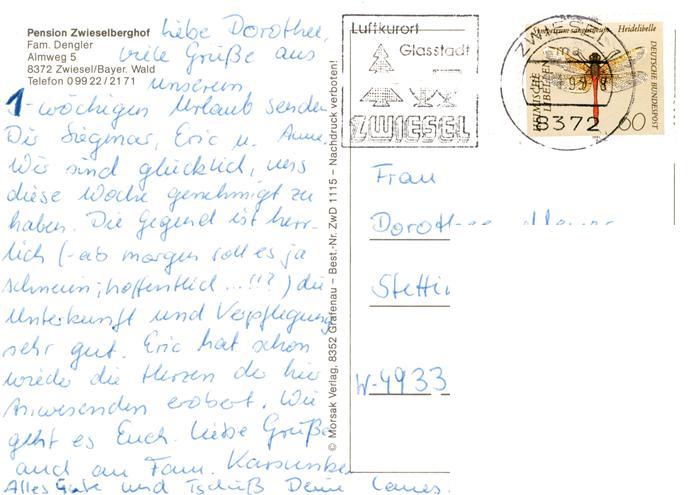 Pension Zwieselberghof
Fam. Dengler
Almweg 5
8372 Zwiesel/Bayer. Wald
Telefon 0 99 22 / 21 71
Liebe Dorothee,
viele Grüße aus
unserem
1-wöchigen Urlaub senden
Dir Siegmar, Eric u. Anne.
Wir sind glücklich, uns
diese Woche genehmigt zu
haben. Die Gegend ist herr-
lich (-ab morgen soll es ja
schneien; hoffentlich...!!?) die
Unterkunft und Verpflegung
sehr gut. Eric hat schon
wieder die Herzen der hier
Anwesenden erobert. Wie
geht es Euch. Liebe Grüße
auch an Fam.
Alles Gute und Tschüß Deine
© Morsak Verlag, 8352 Grafenau – Best.-Nr. ZwD 1115 – Nachdruck verboten!
Luftkurort
Glasstadt
ZWIESEL
ZWIESEL
8372
Heidelibelle
DEUTSCHE BUNDESPOST
60
Frau
Dorothee
Stettin
W-4933